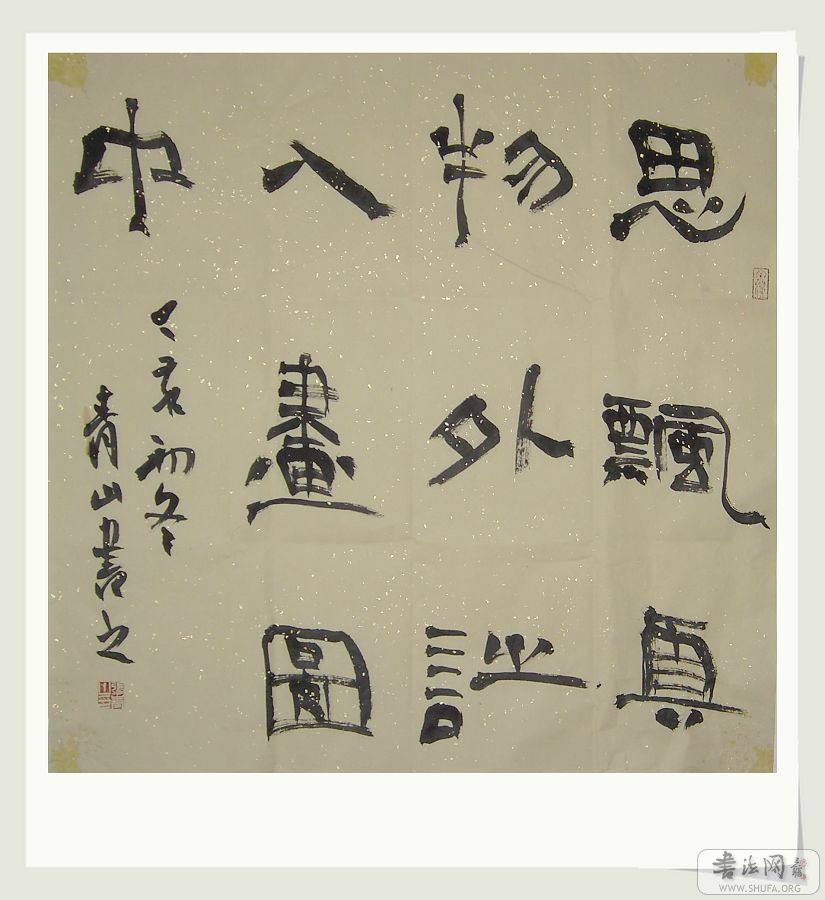 思飄真
物外詩
入畫圖
中
初冬
青山書之
書法网
WWW.SHUFA.ORG